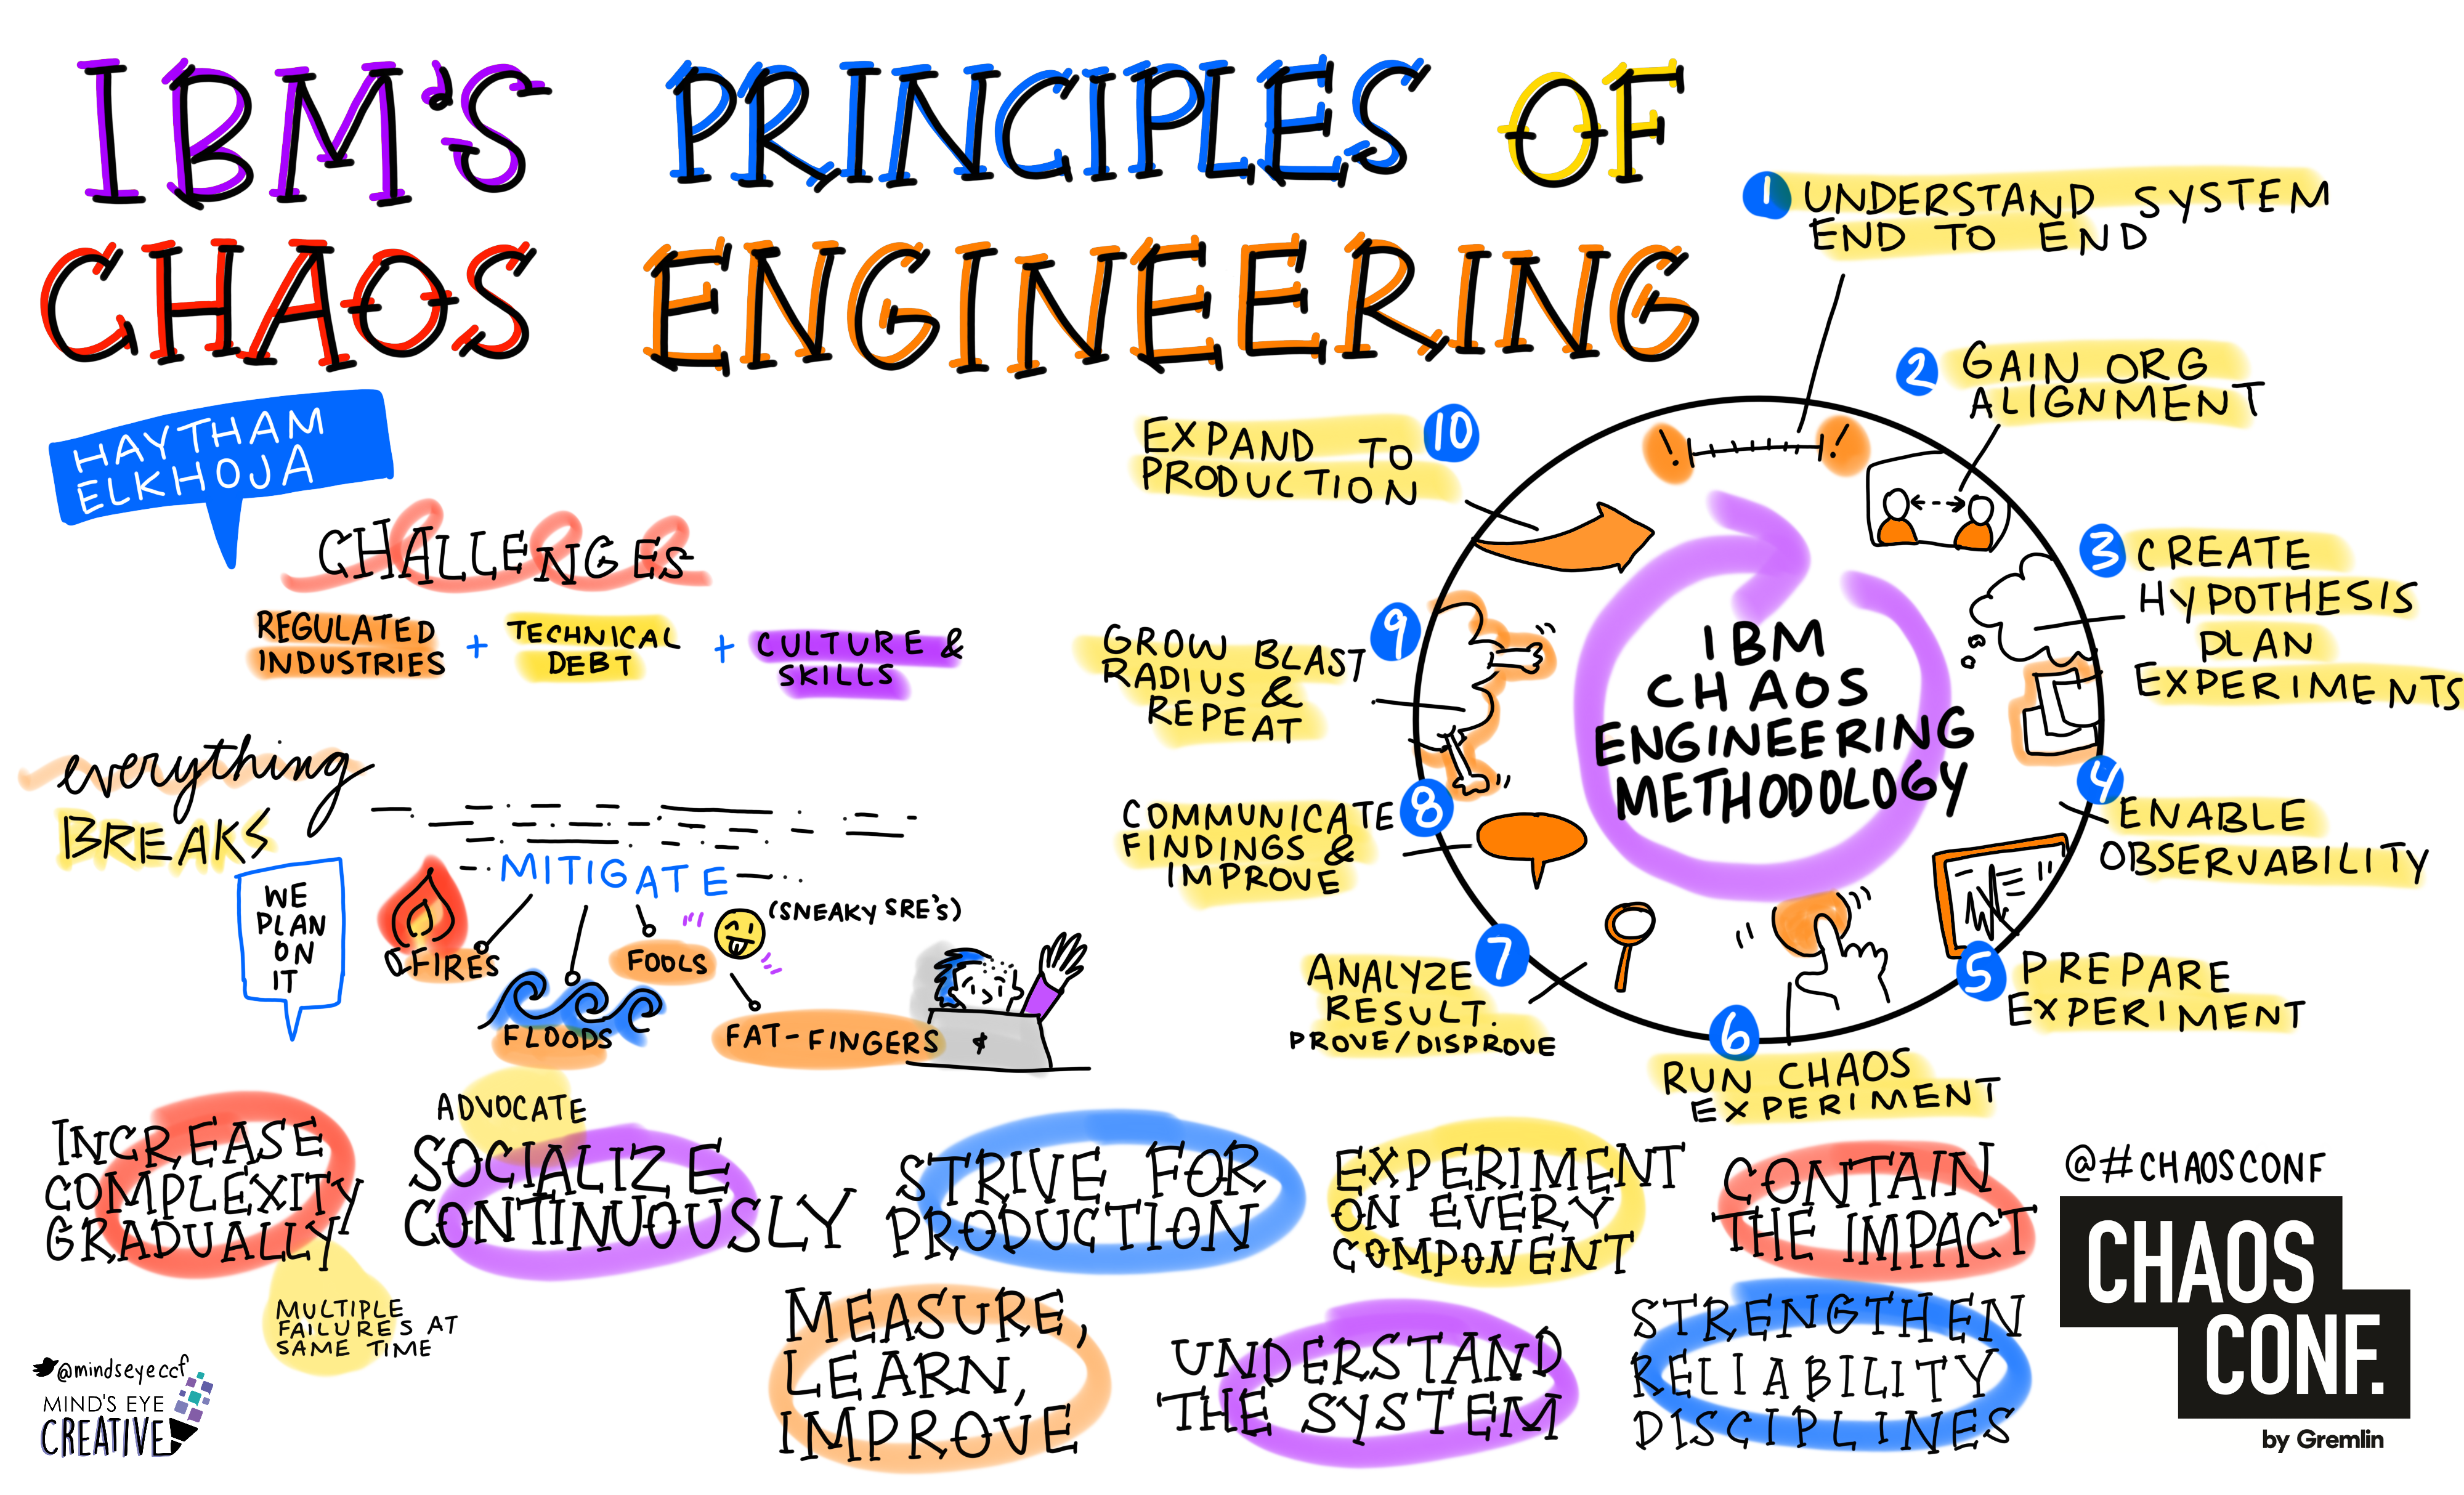 IBM'S PRINCIPLES OF
CHAOS ENGINEERING
HAYTHAM
ELKHOJA
CHALLENGES
REGULATED
INDUSTRIES
+
TECHNICAL
DEBT
+
CULTURE &
SKILLS
everything
BREAKS
WE
PLAN
ON
IT
MITIGATE
FIRES
FLOODS
FOOLS
(SNEAKY SRE'S)
FAT-FINGERS
1 UNDERSTAND SYSTEM
END TO END
2 GAIN ORG
ALIGNMENT
3 CREATE
HYPOTHESIS
PLAN
EXPERIMENTS
4 ENABLE
OBSERVABILITY
5 PREPARE
EXPERIMENT
6 RUN CHAOS
EXPERIMENT
7 ANALYZE
RESULT.
PROVE/DISPROVE
8 COMMUNICATE
FINDINGS &
IMPROVE
9 GROW BLAST
RADIUS &
REPEAT
10 EXPAND TO
PRODUCTION
! !
IBM
CHAOS
ENGINEERING
METHODOLOGY
INCREASE
COMPLEXITY
GRADUALLY
MULTIPLE
FAILURES AT
SAME TIME
ADVOCATE
SOCIALIZE
CONTINUOUSLY
STRIVE FOR
PRODUCTION
EXPERIMENT
ON EVERY
COMPONENT
CONTAIN
THE IMPACT
MEASURE,
LEARN,
IMPROVE
UNDERSTAND
THE SYSTEM
STRENGTHEN
RELIABILITY
DISCIPLINES
@#CHAOSCONF
CHAOS
CONF.
by Gremlin
@mindseyeccf
MIND'S EYE
CREATIVE